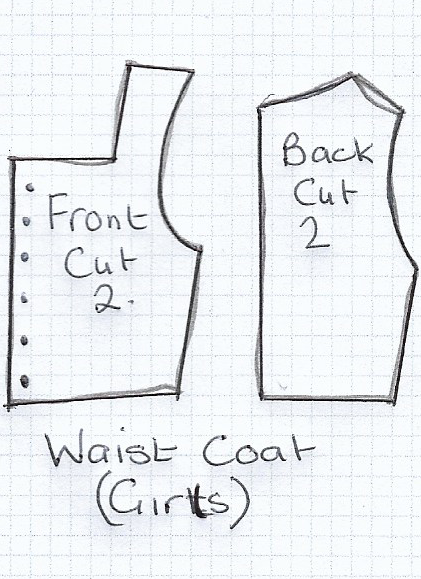 Front
Cut
2.
Back
Cut
2
Waist Coat
(Girls)